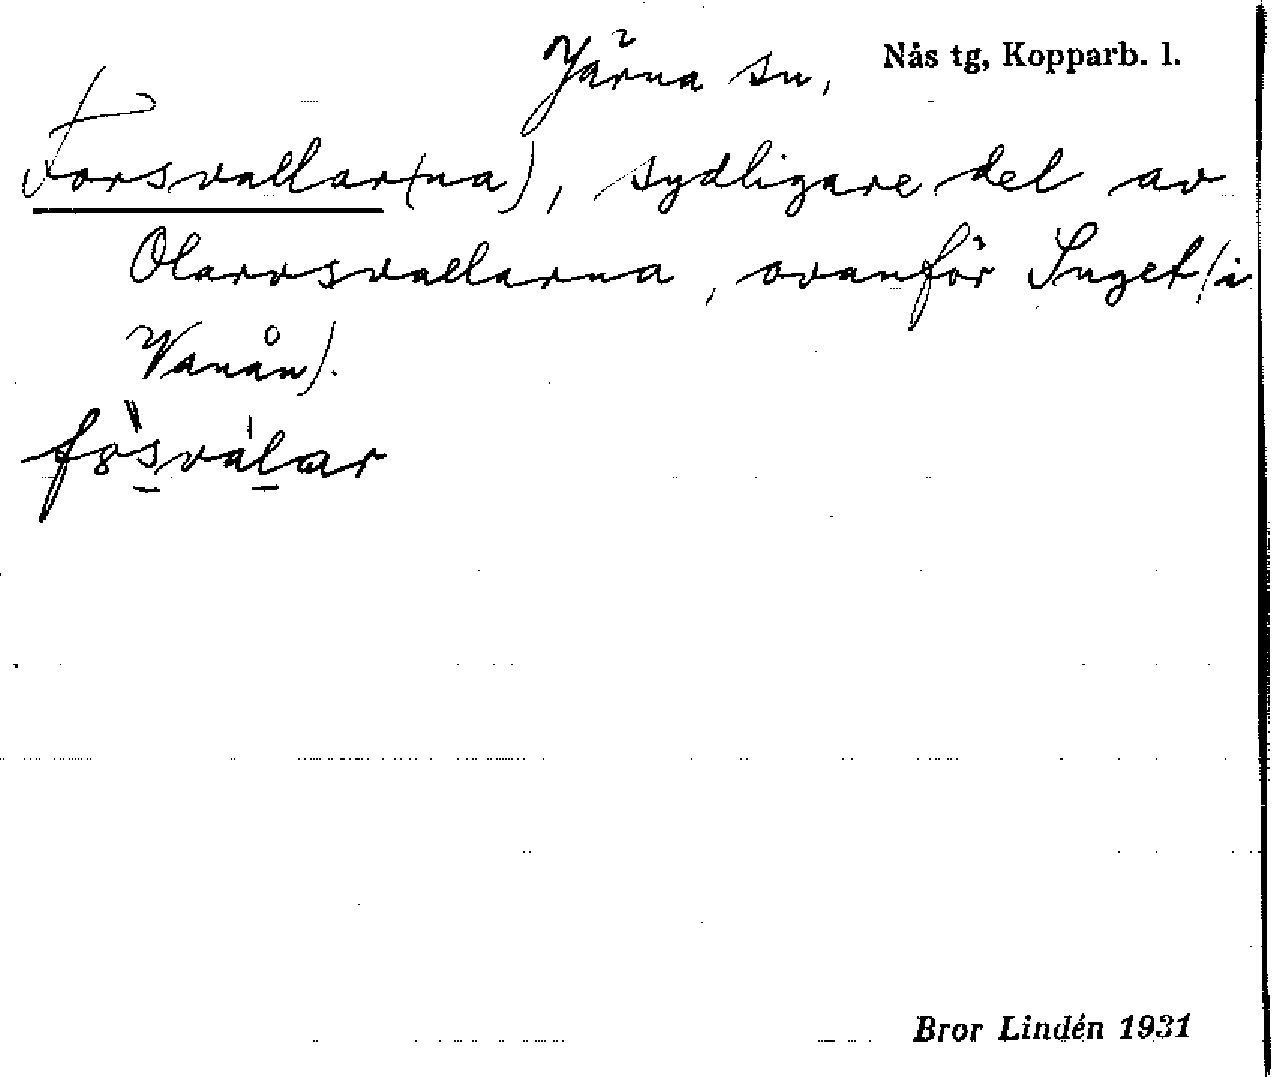 Järna sn, Nås tg, Kopparb. l.
Forsvallar(na), sydligare del av
Olarvsvallarna, ovanför Inget (i
Vanån).
Bror Lindén 1931